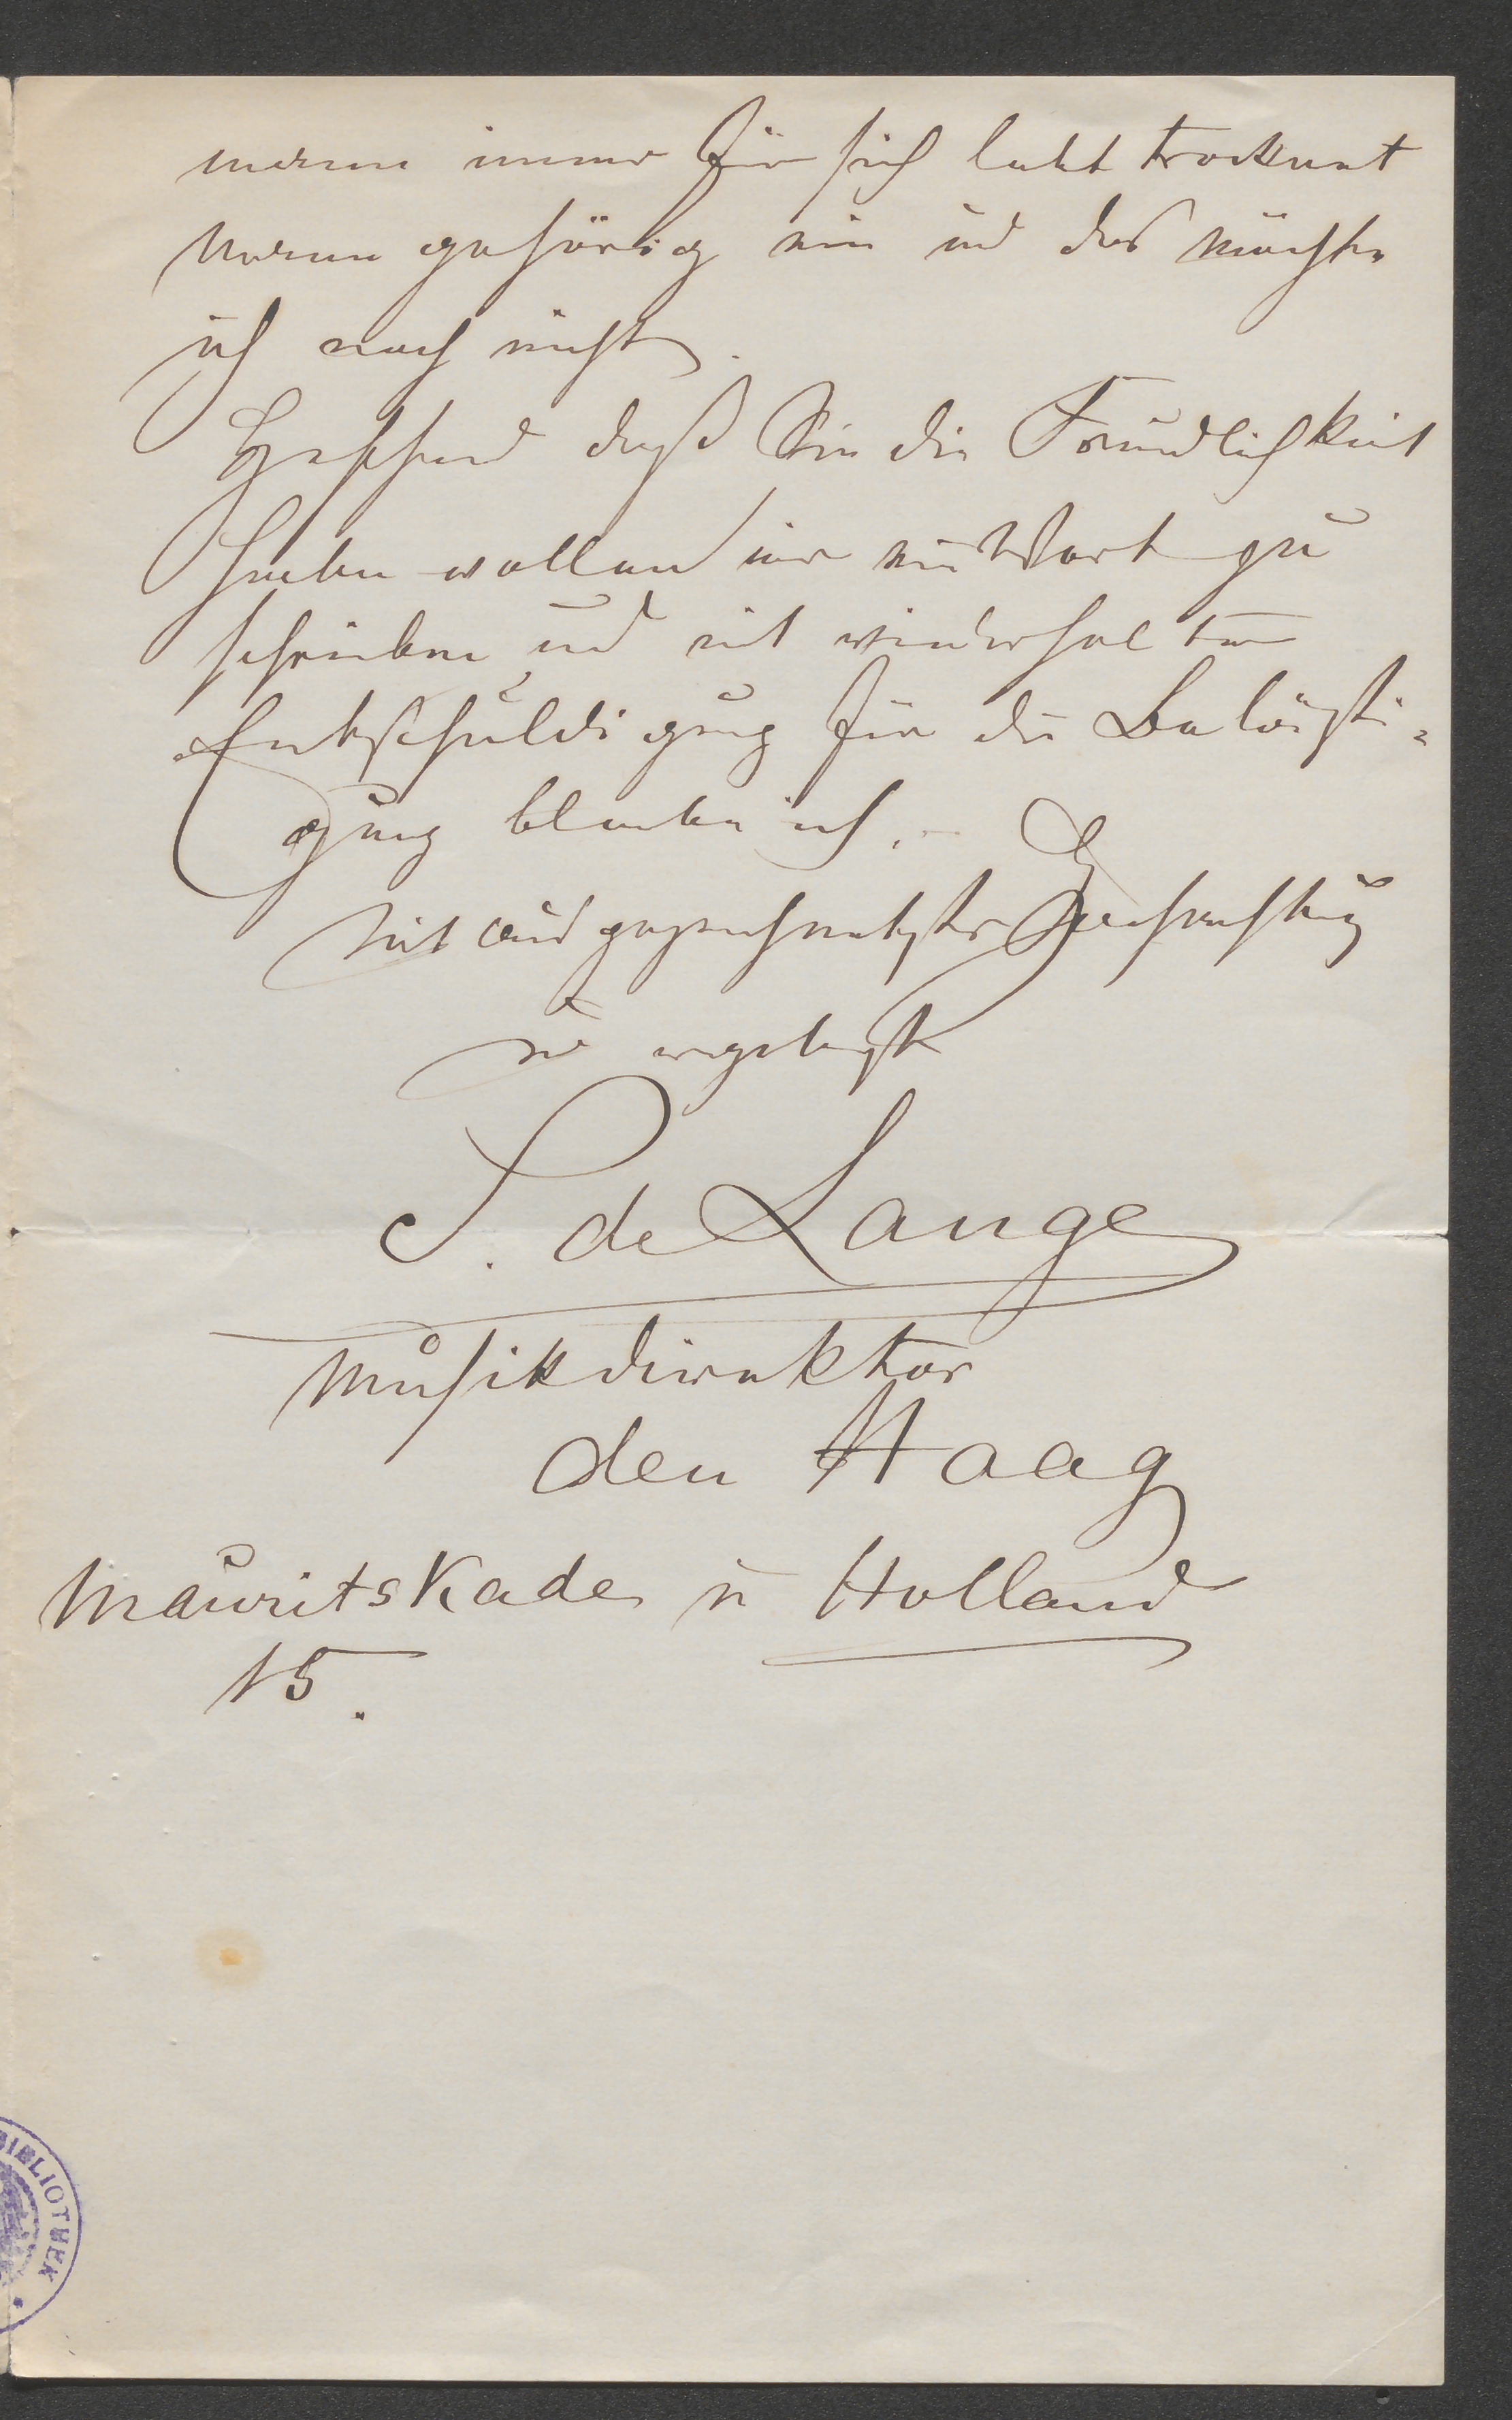 wenn immer für sich lebt trocknet
wenn gehörig ein und das möchte
ich noch nicht.
Hoffend daß Sie die Freundlichkeit
haben wollen mir ein Wort zu
schreiben und mit wiederholter
Entschuldigung für die Belästi-
gung bleibe ich. -
Mit ausgezeichnetster Hochachtung
ergebenst
S. de Lange
Musikdirektor
den Haag
Mauritskade in Holland
15.
BIBLIOTHEK